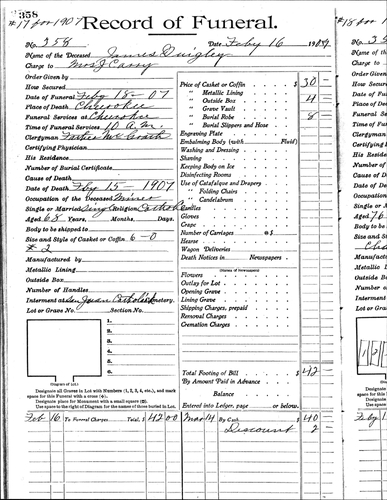 358
#17 for 1907
Record of Funeral.
No. 358 Date Feby 16 1907
Name of the Deceased James Quigley
Charge to Mrs J Casey
Order Given by
How Secured
Date of Funeral Feby 18-07
Place of Death Cherokee
Funeral Services at Cherokee
Time of Funeral Services 10 A.M.
Clergyman Father McGrath
Certifying Physician
His Residence
Number of Burial Certificate
Cause of Death
Date of Death Feby 15-1907
Occupation of the Deceased Miner
Single or Married Sing Religion Catholic
Aged 68 Years, Months, Days.
Body to be shipped to
Size and Style of Casket or Coffin 6-0
#2
Manufactured by
Metallic Lining
Outside Box
Number of Handles
Interment at San Juan Catholic Cemetery.
Lot or Grave No. Section No.
1.
2.
3.
4.
5.
6.
(Diagram of Lot.)
Designate all Graves in Lot with Numbers (1, 2, 3, 4, etc.), and mark
space for this Funeral with a cross (+).
Designate place for Monument with a small square (□).
Use space to right of Diagram for the names of those buried in Lot.
Price of Casket or Coffin $ 30 -
" Metallic Lining
" Outside Box 4
" Grave Vault
" Burial Robe 8 -
" Burial Slippers and Hose
Engraving Plate
Embalming Body (with Fluid)
Washing and Dressing
Shaving
Keeping Body on Ice
Disinfecting Rooms
Use of Catafalque and Drapery
" Folding Chairs
" Candelabrum
Candles
Gloves
Crape
Number of Carriages @ $
Hearse
Wagon Deliveries
Death Notices in Newspapers
(Names of Newspapers)
Flowers
Outlay for Lot
Opening Grave
Lining Grave
Shipping Charges, prepaid
Removal Charges
Cremation Charges
Total Footing of Bill $ 42 -
By Amount Paid in Advance
Balance
Entered into Ledger, page or below.
Feb 16 To Funeral Charges Total, $ 42 00 Mar 14 By Cash $ 40
Discount 2
#18 for
No.
Name
Charge
Order
How
Date of
Place of
Funeral
Time of
Clergyman
Certifying
His
Number
Cause
Date of
Occupation
Single or
Aged 76
Body to
Size and
Manufactured
Metallic
Outside
Number
Interment
Lot or
Feby 1